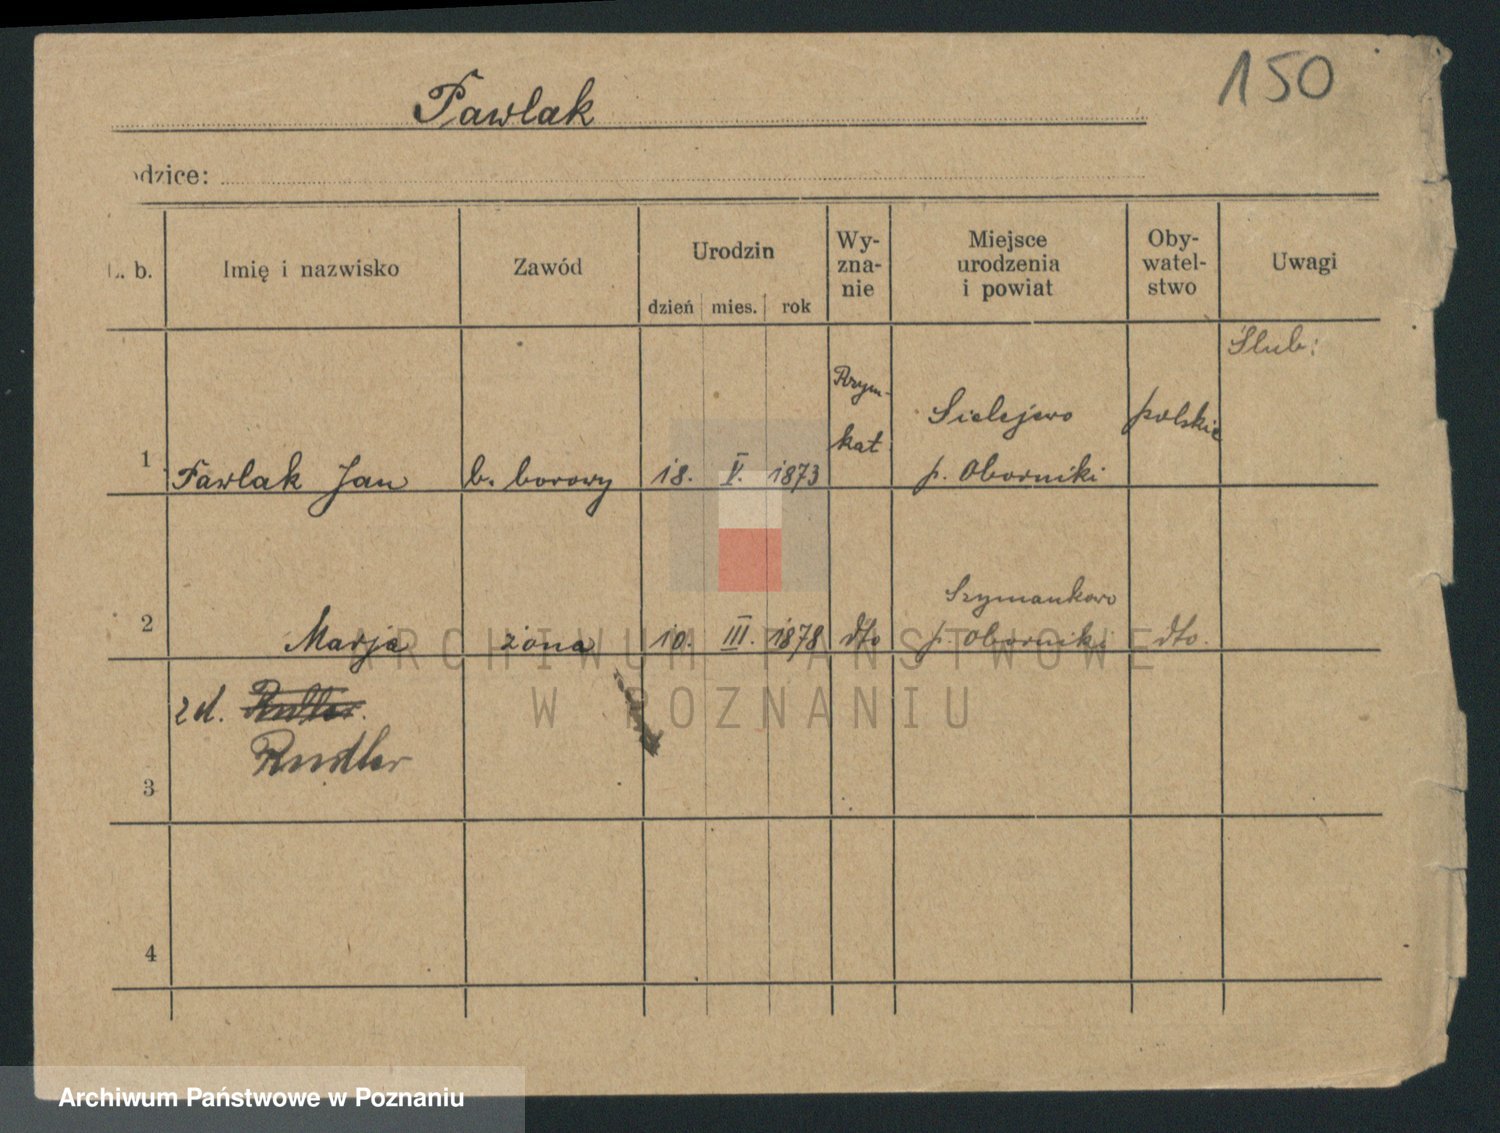 150
Pawlak
odzice:
L. b.
Imię i nazwisko
Zawód
Urodzin
dzień mies. rok
Wy-
zna-
nie
Miejsce
urodzenia
i powiat
Oby-
watel-
stwo
Uwagi
Ślub:
1 Pawlak Jan b. borowy 18. V. 1873
Rzym-
kat
Sielejewo
p. Oborniki
polskie
2 Marja żona 10. III. 1878 dto
Szymankowo
p. Oborniki
dto.
3
z d.
Rudler
4
ARCHIWUM PAŃSTWOWE
W POZNANIU
Archiwum Państwowe w Poznaniu